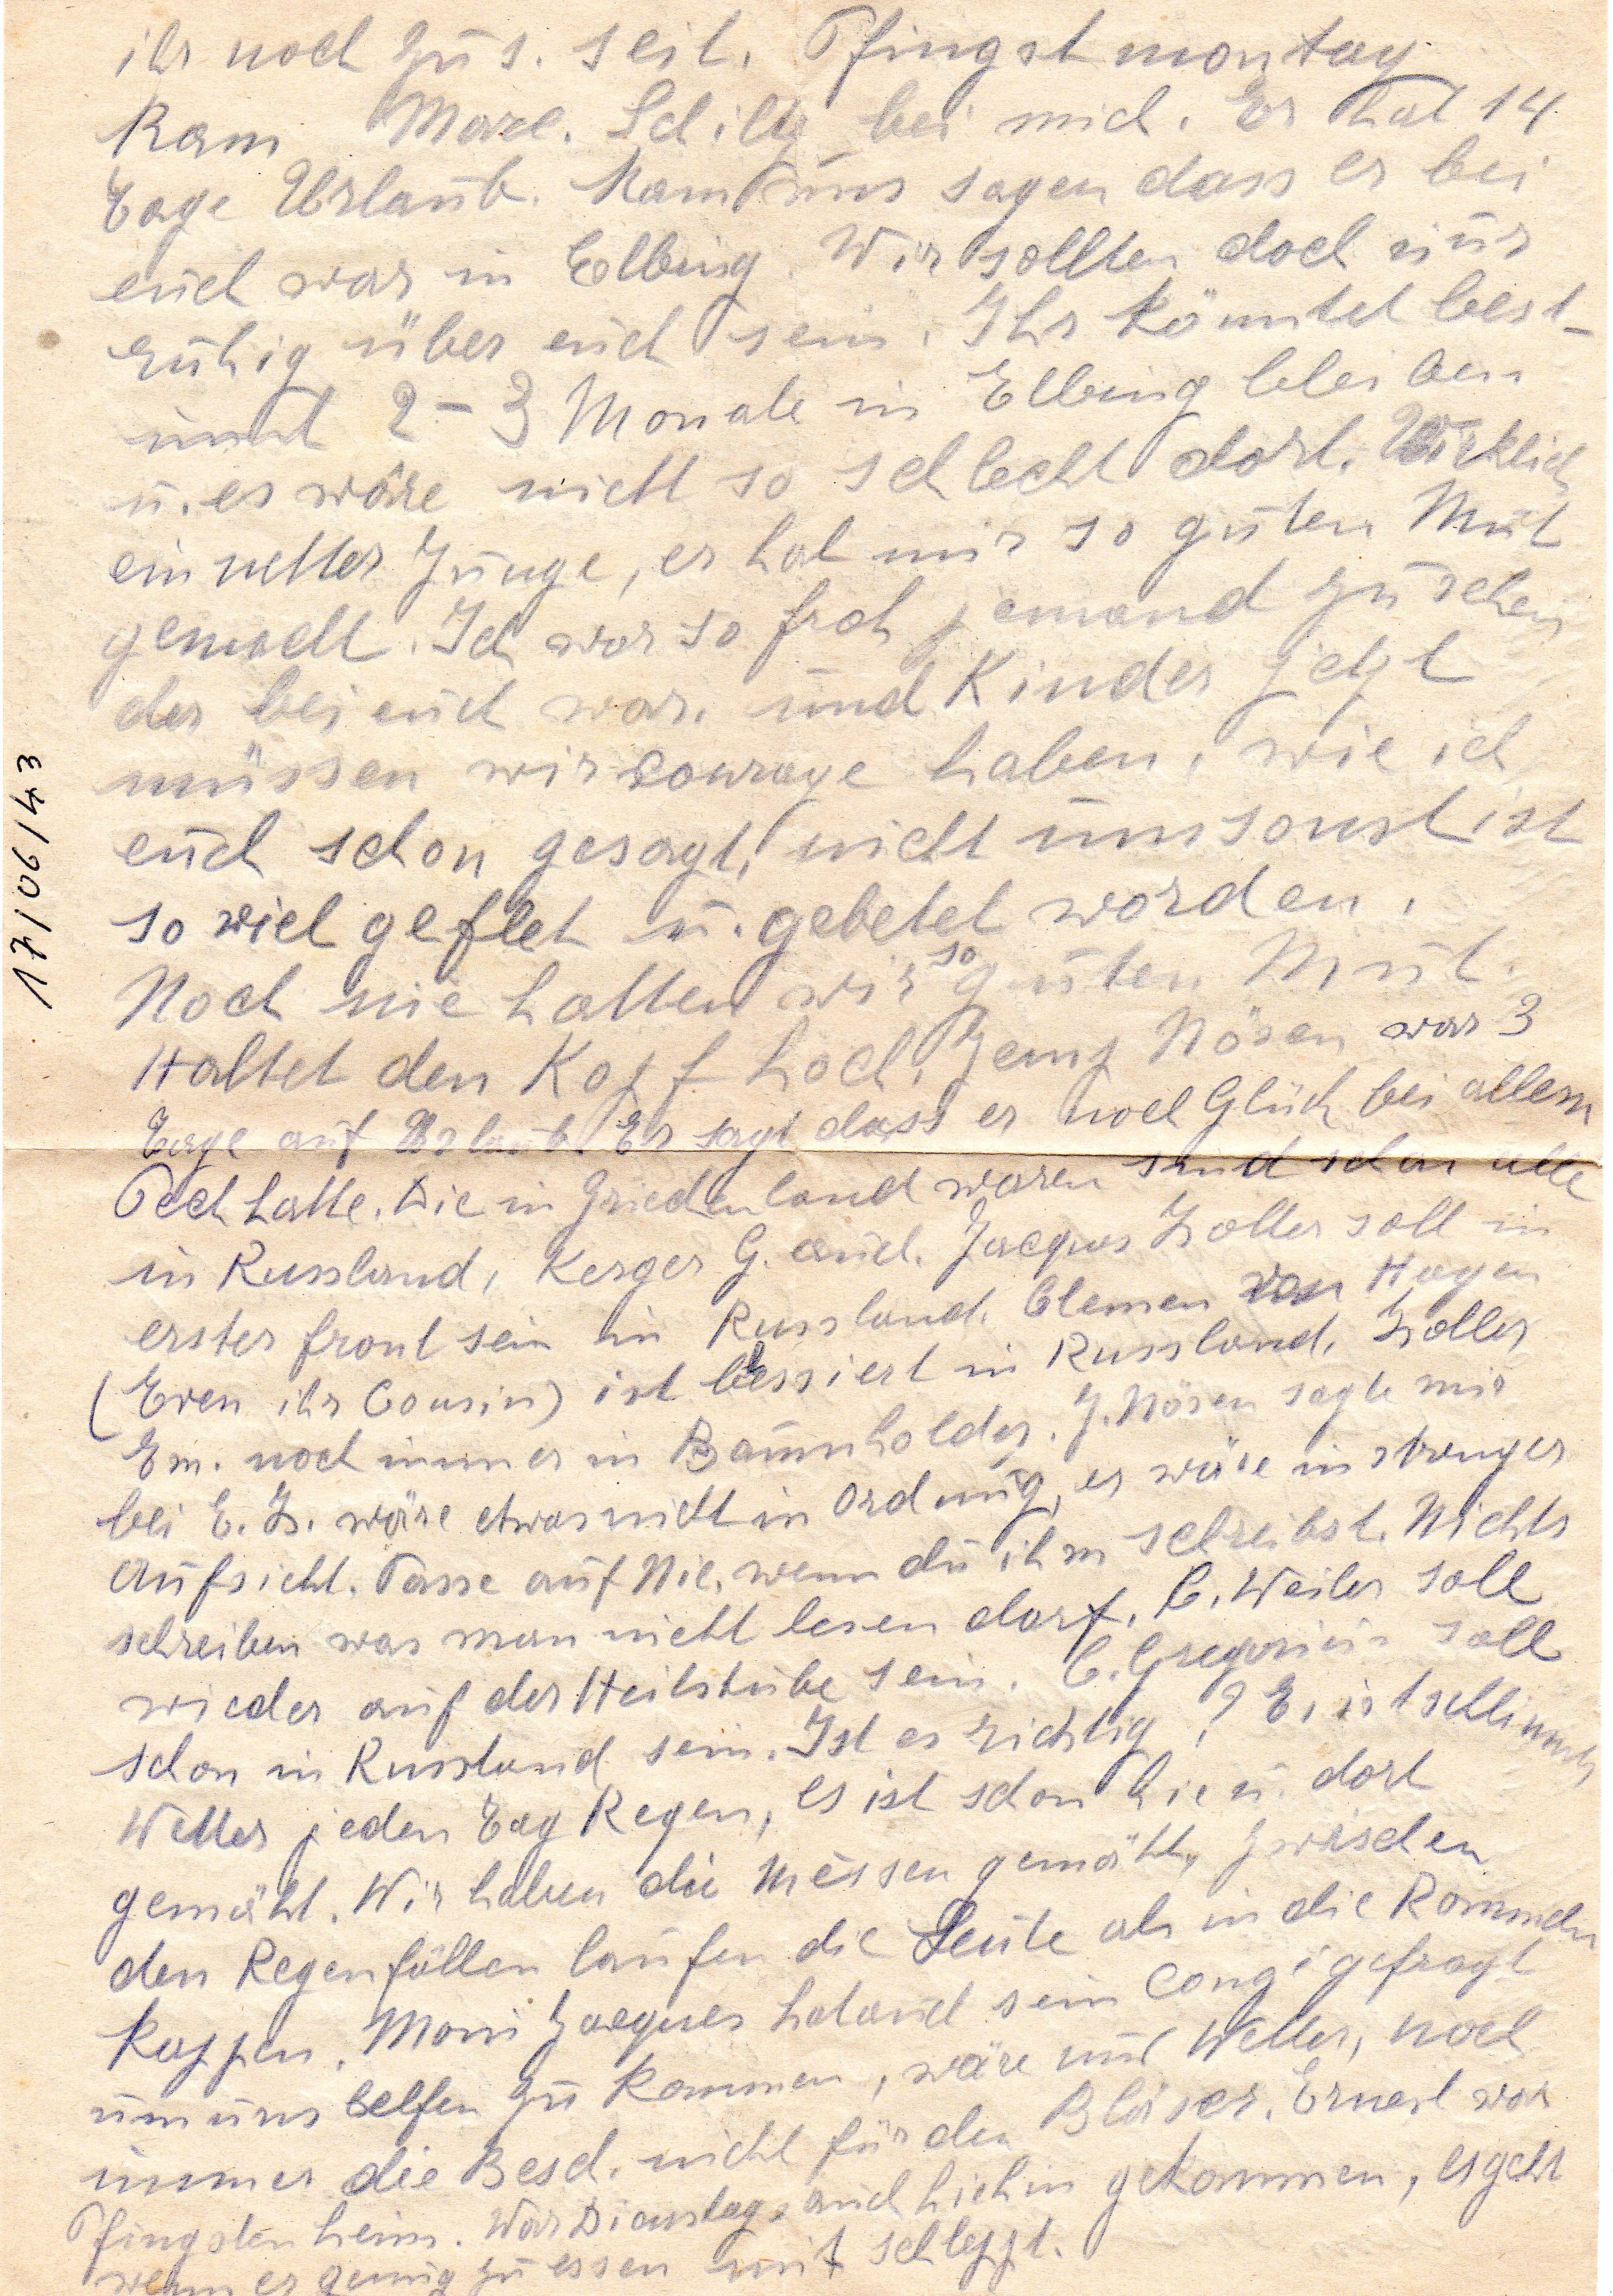 ihr noch zus. seit. Pfingstmontag
kam Marc. Schiltz bei mich. Er hat 14
Tage Urlaub. Kam uns sagen dass er bei
euch war in Elbing. Wir sollten doch nur
ruhig über euch sein. Ihr könntet best-
immt 2-3 Monate in Elbing bleiben
u. es wäre nicht so schlecht dort. Wirklich
ein netter Junge, er hat mir so guten Mut
gemacht. Ich war so froh jemand zu sehen
der bei euch war. und Kinder jetzt
müssen wir courage haben, wie ich
euch schon gesagt, nicht umsonst ist
so viel gefleht u. gebetet worden.
Noch nie hatten wir so guten Mut.
Haltet den Kopf hoch. Jemp Nösen war 3
Tage auf Urlaub Er sagt dass er noch Glück bei allem
Pech hatte. Die in Griechenland waren sind schon alle
in Russland, Kerger G. auch. Jacques Zoller soll in
erster front sein in Russland. Clemen von Hagen
(Even ihr Cousin) ist blessiert in Russland. Zoller
Em. noch immer in Baumholder. J. Nösen sagte mir
bei E. Z. wäre etwas nicht in Ordnug, er wäre in strenger
Aufsicht. Passe auf Nic. wenn du ihm schreibst. Nichts
schreiben was man nicht lesen darf. C. Weiler soll
wieder auf der Heilstube sein. C. Gregorius soll
schon in Russland sein. Ist es richtig? E. ist schlimmes
Wetter jeden Tag Regen, es ist schon hie u. dort
gemäht. Wir haben die Messen gemäht, zwischen
den Regenfällen laufen die Leute als in die Rommeln
kappen. Moni Jacques hat auch sein Congé gefragt
um uns helfen zu kommen, wäre nur Wetter, noch
immer die Besch. nicht für den Bläser. Ernest war
Pfingsten heim. War Dienstags auch hiehin gekommen, es geht
wenn er genug zu essen mit schleppt.
17/06/43